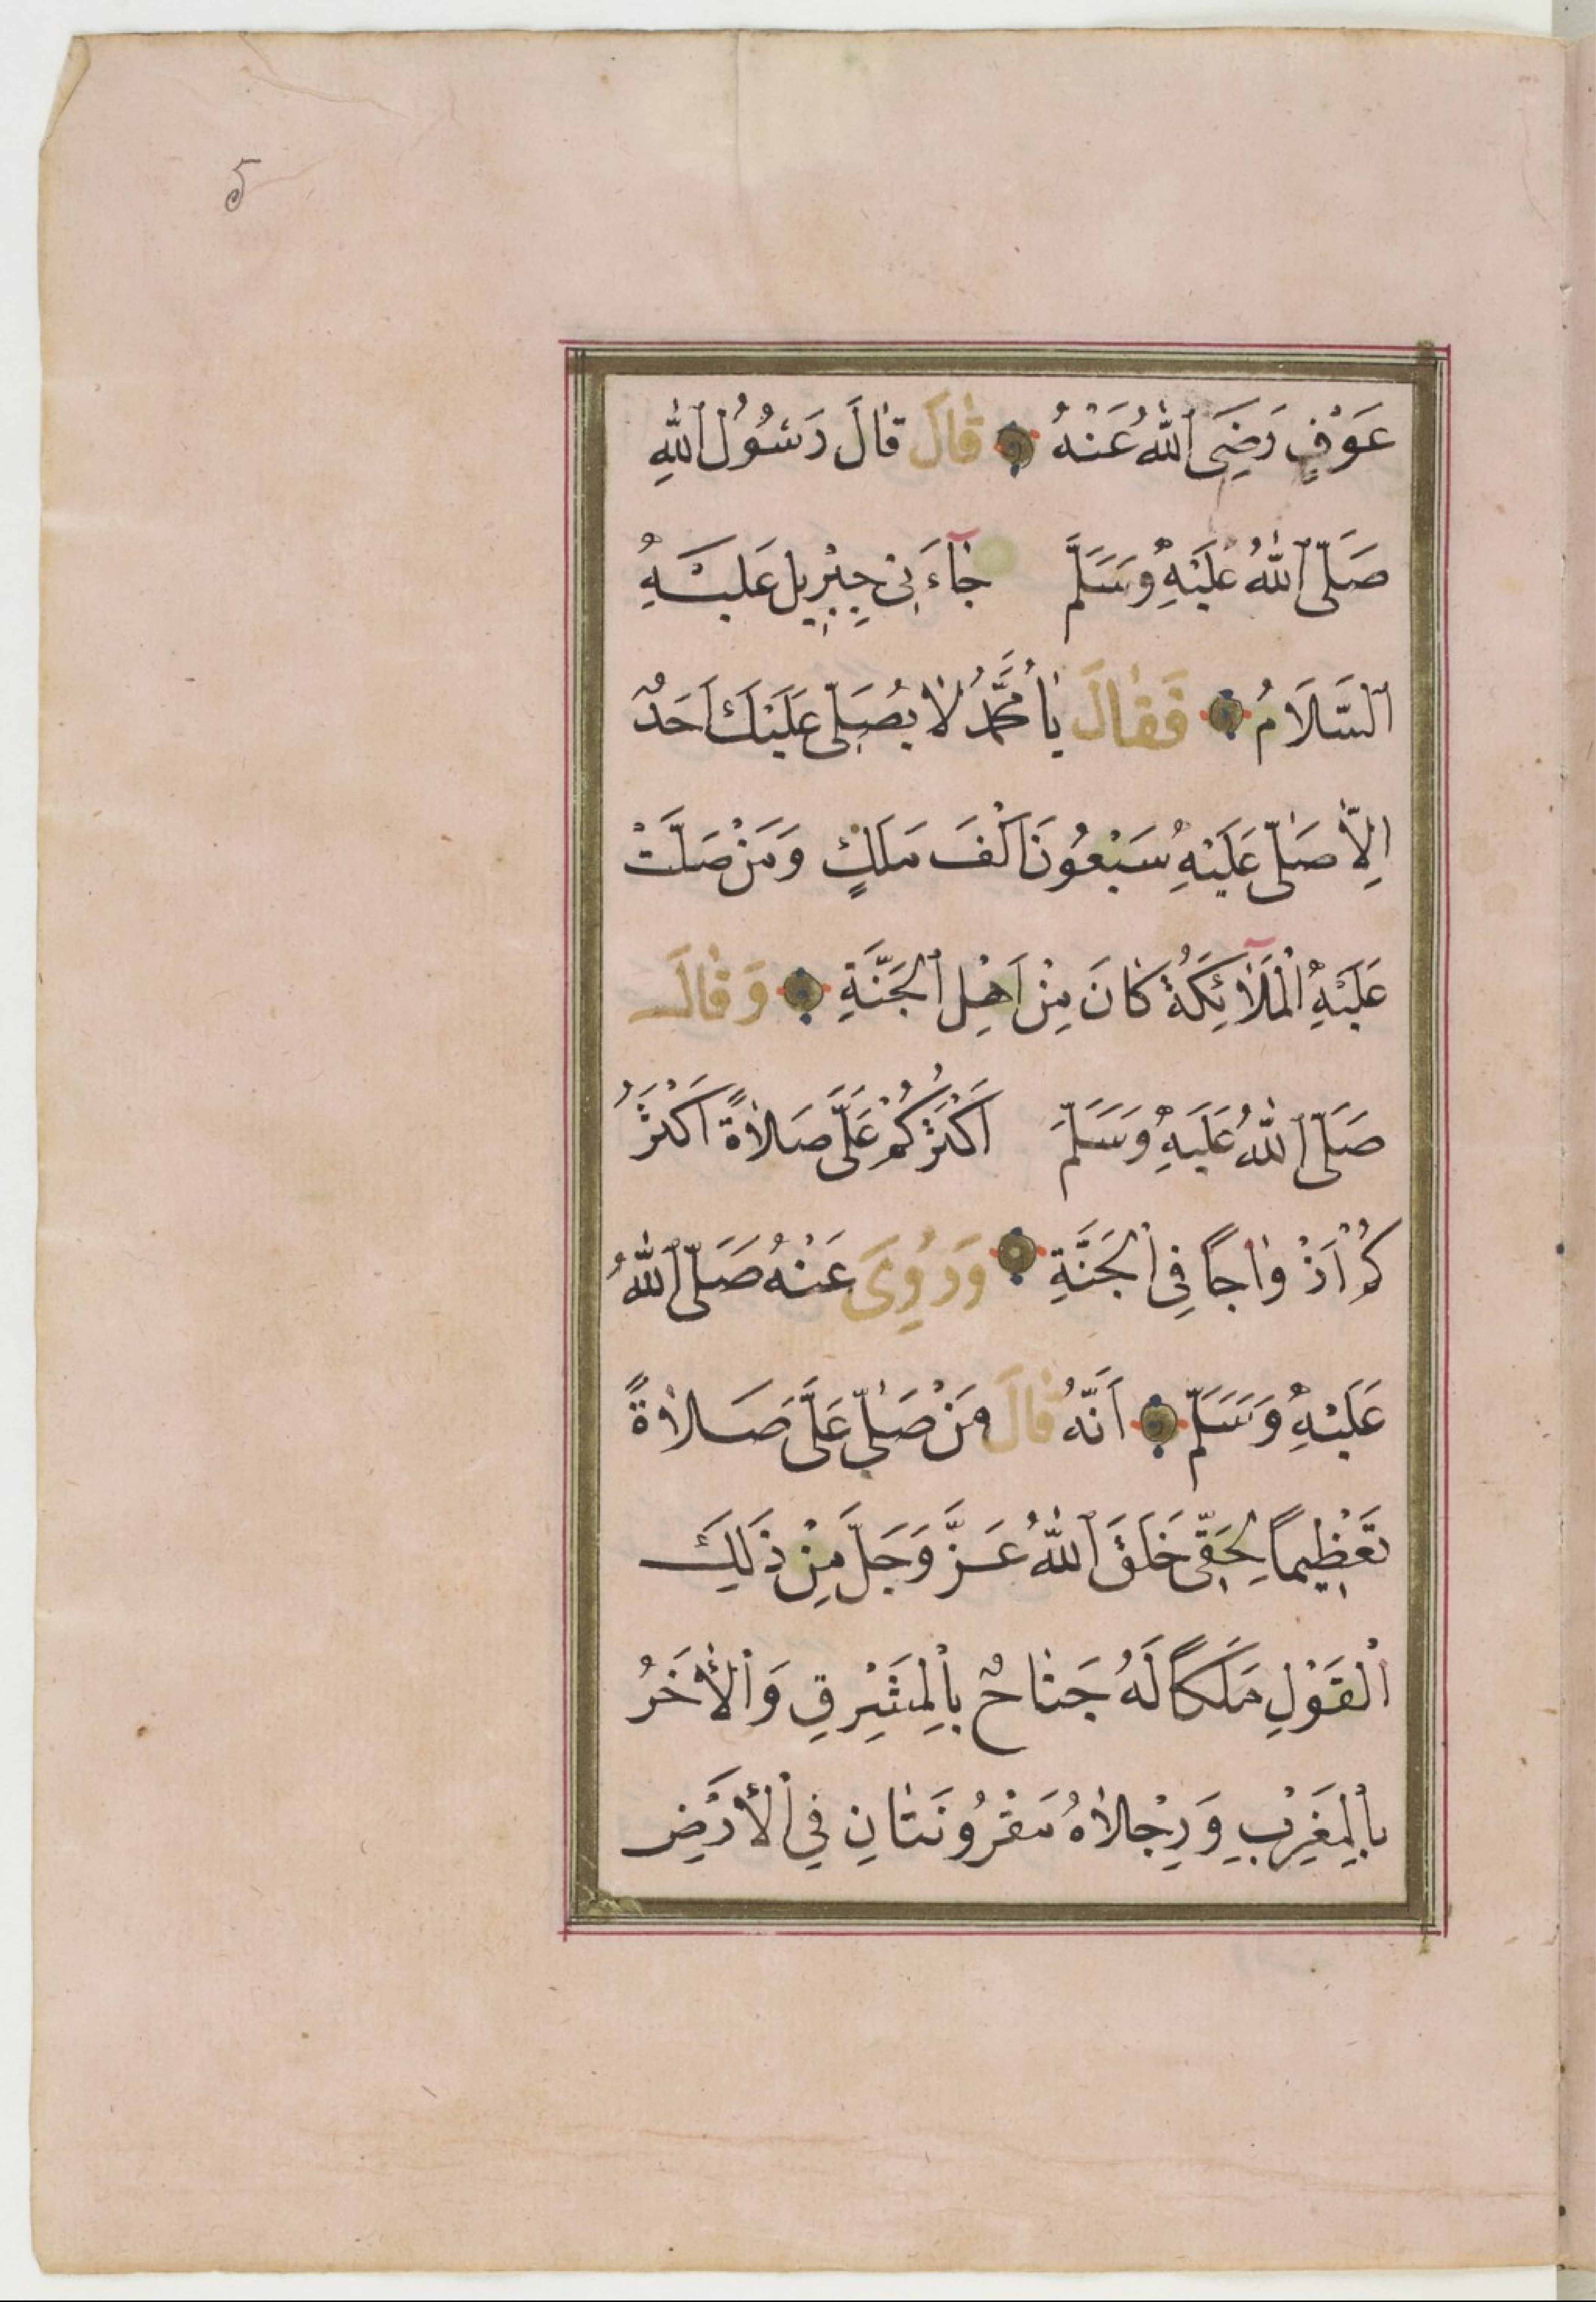 ٥
عَوْفٍ رَضِيَ اللهُ عَنْهُ قَالَ قَالَ رَسُولُ اللهِ
صَلَّى اللهُ عَلَيْهِ وَسَلَّمَ جَآءَنِي جِبْرِيلُ عَلَيْهِ
السَّلَامُ فَقَالَ يَا مُحَمَّدُ لَا يُصَلِّي عَلَيْكَ أَحَدٌ
اِلَّا صَلَّى عَلَيْهِ سَبْعُونَ اَلْفَ مَلَكٍ وَمَنْ صَلَّتْ
عَلَيْهِ الْمَلَآئِكَةُ كَانَ مِنْ اَهْلِ الْجَنَّةِ وَقَالَ
صَلَّى اللهُ عَلَيْهِ وَسَلَّمَ اَكْثَرُكُمْ عَلَيَّ صَلَاةً اَكْثَرُ
كُمْ اَزْوَاجًا فِي الْجَنَّةِ وَرُوِيَ عَنْهُ صَلَّى اللهُ
عَلَيْهِ وَسَلَّمَ اَنَّهُ قَالَ مَنْ صَلَّى عَلَيَّ صَلَاةً
تَعْظِيمًا لِحَقِّي خَلَقَ اللهُ عَزَّ وَجَلَّ مِنْ ذَلِكَ
الْقَوْلِ مَلَكًا لَهُ جَنَاحٌ بِالْمَشْرِقِ وَالْأَخَرُ
بِالْمَغْرِبِ وَرِجْلَاهُ مَقْرُونَتَانِ فِي الْأَرْضِ